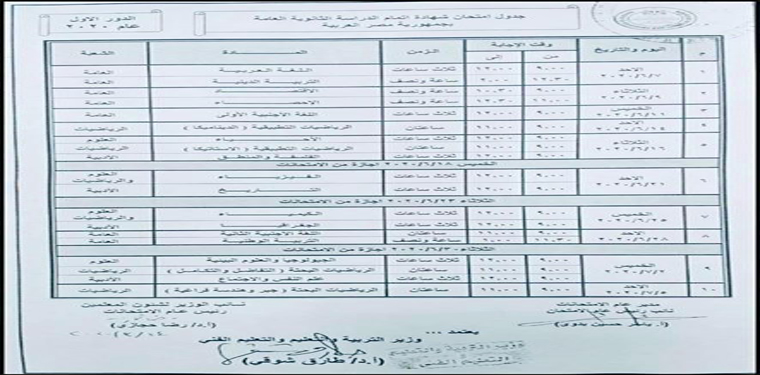 جدول امتحان شهادة اتمام الدراسة الثانوية العامة
بجمهورية مصر العربية
الدور الاول
عام ٢٠٢٠
م اليوم والتاريخ وقت الإجابة من إلى الزمن المادة الشعبة
١ الاحد ٢٠٢٠/٦/٧ ٩,٠٠ ١٢,٠٠ ثلاث ساعات اللغة العربية العامة
١٢,٣٠ ٢,٠٠ ساعة ونصف التربية الدينية العامة
٢ الثلاثاء ٢٠٢٠/٦/٩ ٩,٠٠ ١٠,٣٠ ساعة ونصف الاقتصاد العامة
١١,٠٠ ١٢,٣٠ ساعة ونصف الإحصاء العامة
٣ الخميس ٢٠٢٠/٦/١١ ٩,٠٠ ١٢,٠٠ ثلاث ساعات اللغة الأجنبية الأولى العامة
٤ الاحد ٢٠٢٠/٦/١٤ ٩,٠٠ ١١,٠٠ ساعتان الرياضيات التطبيقية ( الديناميكا ) الرياضيات
٥ الثلاثاء ٢٠٢٠/٦/١٦ ٩,٠٠ ١٢,٠٠ ثلاث ساعات الأحياء العلوم
٩,٠٠ ١١,٠٠ ساعتان الرياضيات التطبيقية ( الاستاتيكا ) الرياضيات
٩,٠٠ ١٢,٠٠ ثلاث ساعات الفلسفة والمنطق الأدبية
الخميس ٢٠٢٠/٦/١٨ اجازة من الامتحانات
٦ الاحد ٢٠٢٠/٦/٢١ ٩,٠٠ ١٢,٠٠ ثلاث ساعات الفيزياء العلوم والرياضيات
٩,٠٠ ١٢,٠٠ ثلاث ساعات التاريخ الأدبية
الثلاثاء ٢٠٢٠/٦/٢٣ اجازة من الامتحانات
٧ الخميس ٢٠٢٠/٦/٢٥ ٩,٠٠ ١٢,٠٠ ثلاث ساعات الكيمياء العلوم والرياضيات
٩,٠٠ ١٢,٠٠ ثلاث ساعات الجغرافيا الأدبية
٨ الاحد ٢٠٢٠/٦/٢٨ ٩,٠٠ ١١,٠٠ ساعتان اللغة الأجنبية الثانية العامة
١١,٣٠ ساعة ونصف التربية الوطنية العامة
الثلاثاء ٢٠٢٠/٦/٣٠ اجازة من الامتحانات
٩ الخميس ٢٠٢٠/٧/٢ ٩,٠٠ ١٢,٠٠ ثلاث ساعات الجيولوجيا والعلوم البيئية العلوم
٩,٠٠ ١١,٠٠ ساعتان الرياضيات البحتة ( التفاضل والتكامل ) الرياضيات
٩,٠٠ ١٢,٠٠ ثلاث ساعات علم النفس والاجتماع الأدبية
١٠ الاحد ٢٠٢٠/٧/٥ ٩,٠٠ ١١,٠٠ ساعتان الرياضيات البحتة ( جبر وهندسة فراغية ) الرياضيات
مدير عام الامتحانات
نائب رئيس عام الامتحان
( أ. ياسر حسين بدوى )
نائب الوزير لشئون المعلمين
رئيس عام الامتحانات
( أ.د/ رضا حجازى )
يعتمد ...
وزير التربية والتعليم والتعليم الفني
( أ.د/ طارق شوقي )
وزارة التربية والتعليم
والتعليم الفنى